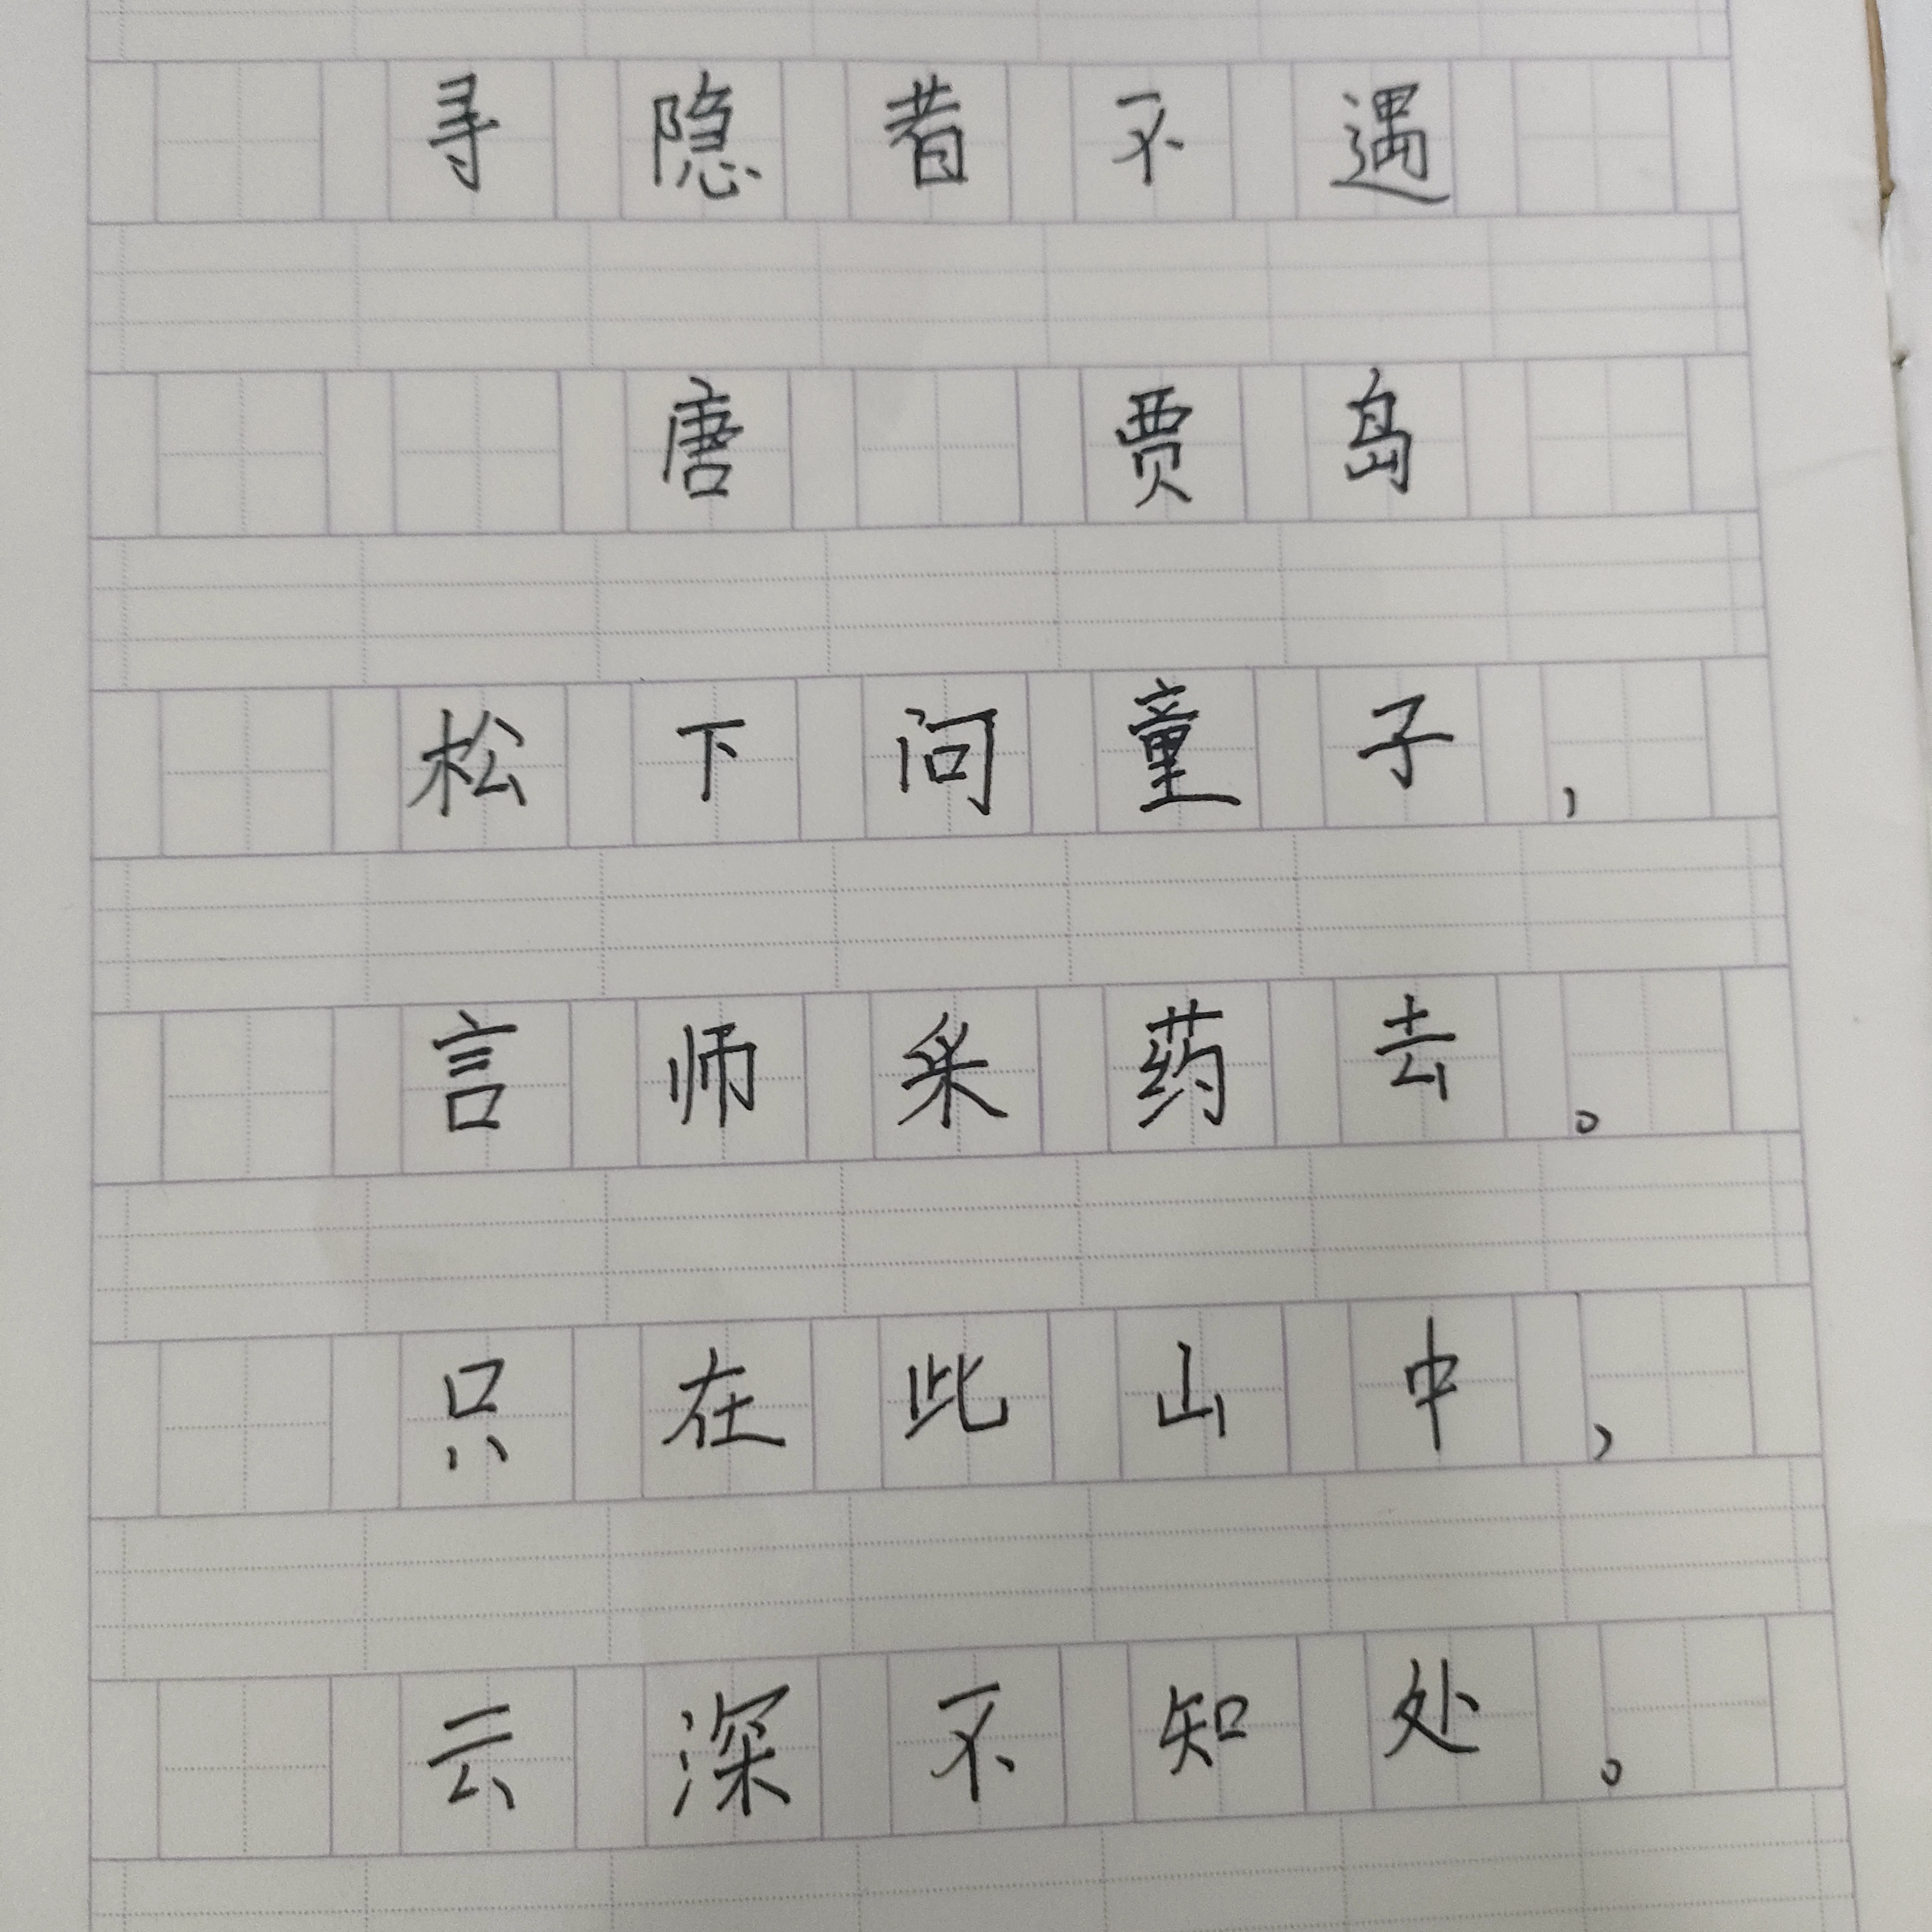 寻隐者不遇
唐 贾岛
松下问童子，
言师采药去。
只在此山中，
云深不知处。